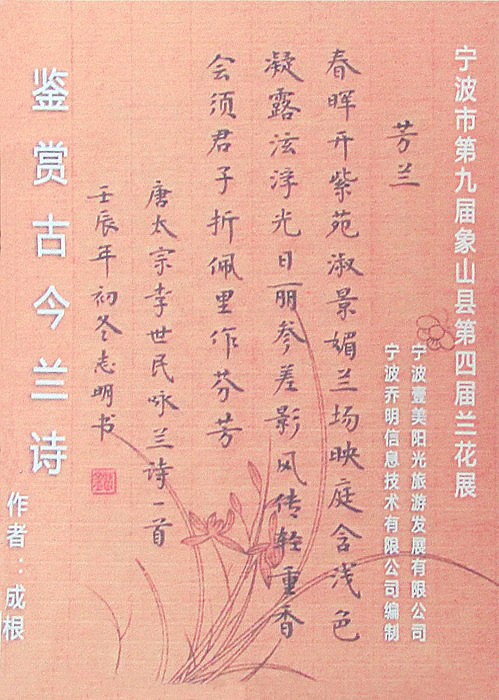 宁波市第九届象山县第四届兰花展
宁波壹美阳光旅游发展有限公司
宁波乔明信息技术有限公司编制
芳兰
春晖开紫苑淑景媚兰场映庭含浅色
凝露泫浮光日丽参差影风传轻重香
会须君子折佩里作芬芳
唐太宗李世民咏兰诗一首
壬辰年初冬志明书
鉴赏古今兰诗
作者：成根